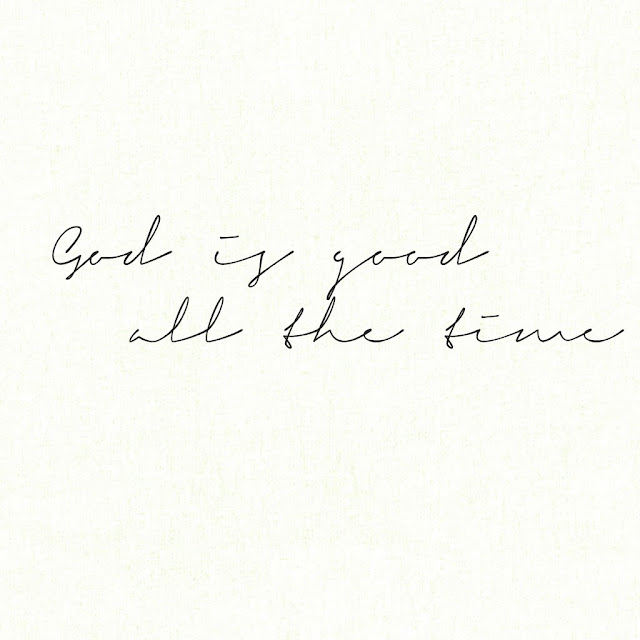 God is good
all the time